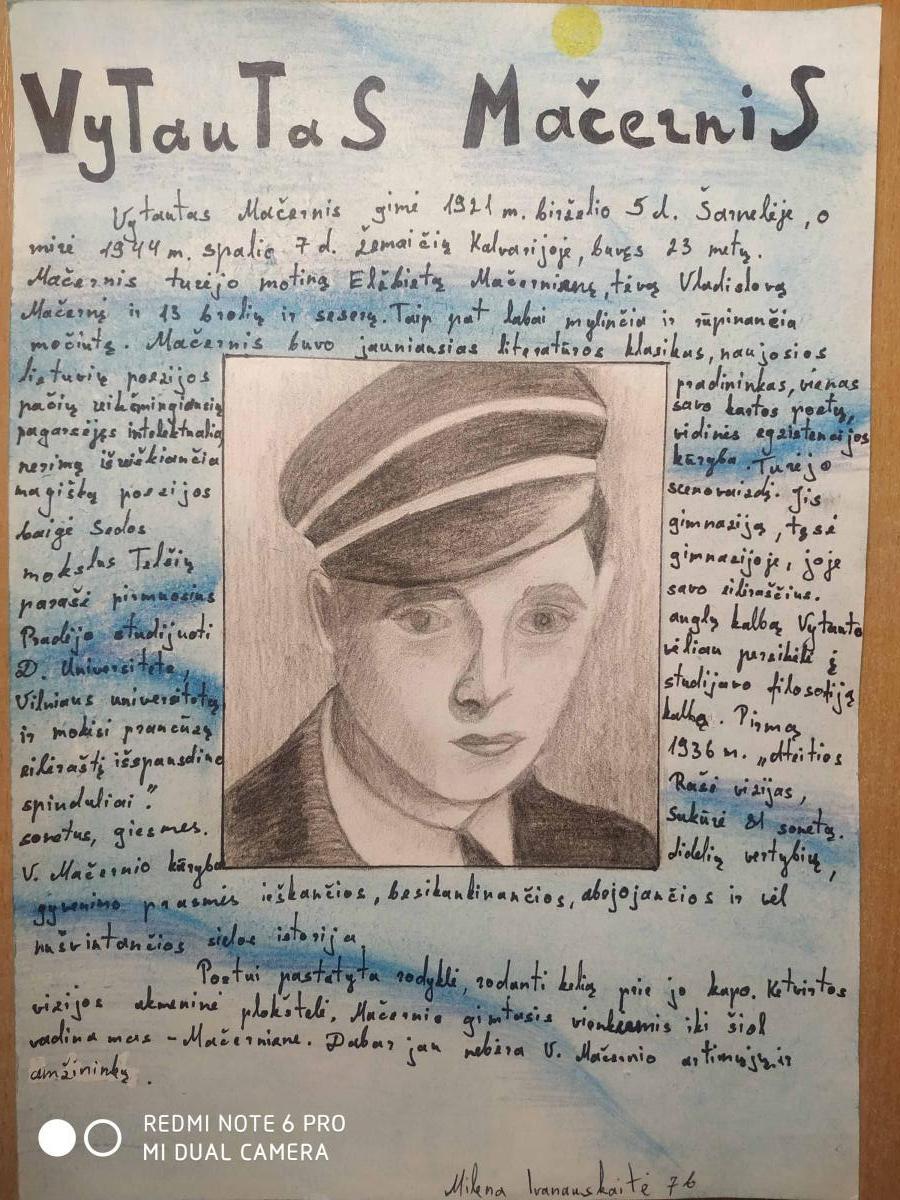 Vytautas Mačernis
Vytautas Mačernis gimė 1921 m. birželio 5 d. Šarnelėje, o
mirė 1944 m. spalio 7 d. Žemaičių Kalvarijoje, buvęs 23 metų.
Mačernis turėjo motiną Elžbietą Mačernianę, tėvą Vladislovą
Mačernį ir 13 brolių ir seserų. Taip pat labai mylinčią ir rūpinančia
močiutę. Mačernis buvo jauniausias literatūros klasikas, naujosios
lietuvių poezijos pradininkas, vienas
pačių reikšmingiausių savo kartos poetų,
pagarsėjęs intelektualią vidinės egzistencijos
nerimą išreiškiančia kūryba. Turėjo
magišką poezijos scenovaizdį. Jis
baigė Sedos gimnaziją, tęsė
mokslus Telšių gimnazijoje, joje
parašė pirmuosius savo eilėraščius.
Pradėjo studijuoti anglų kalbą Vytauto
D. Universitete, vėliau persikėlė į
Vilniaus universitetą studijavo filosofiją
ir mokėsi prancūzų kalbą. Pirmą
eilėraštį išspausdino 1936 m. „Ateities
spinduliai". Rašė vizijas,
sonetus, giesmes. Sukūrė 81 sonetą.
V. Mačernio kūryba didelių vertybių,
gyvenimo prasmės ieškančios, besikankinančios, abejojančios ir vėl
nušvintančios sielos istorija.
Poetui pastatyta rodyklė, rodanti kelią prie jo kapo. Ketvirtos
vizijos akmeninė plokštelė. Mačernio gimtasis vienkiemis iki šiol
vadinamas - Mačerniane. Dabar jau nebėra V. Mačernio artimųjų ir
amžininkų.
REDMI NOTE 6 PRO
MI DUAL CAMERA
Milena Ivanauskaitė 7b